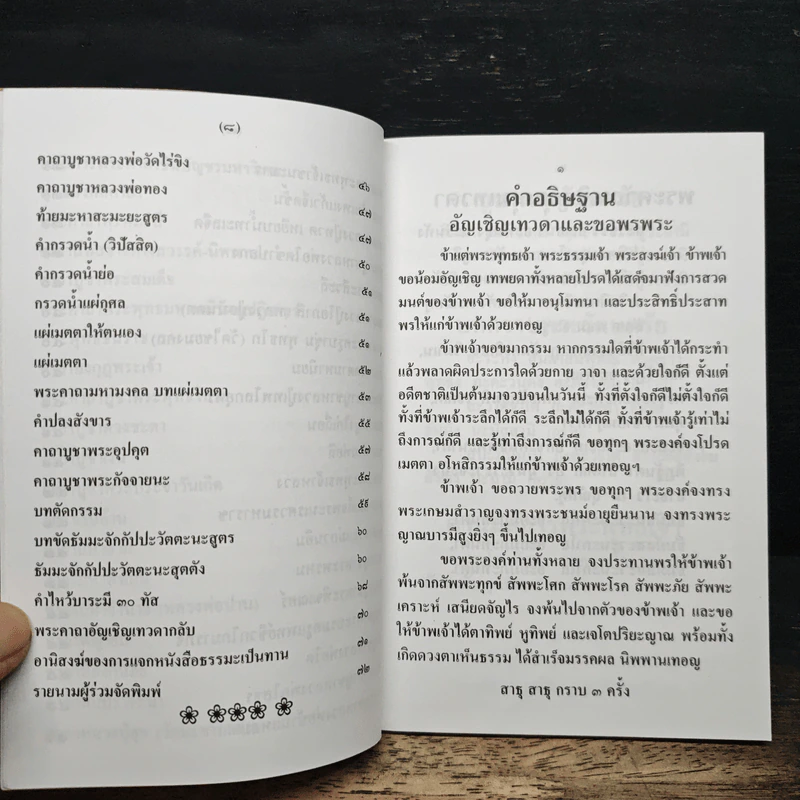 (๘)
คาถาบูชาหลวงพ่อวัดไร่ขิง ๔๖
คาถาบูชาหลวงพ่อทอง ๔๗
ท้ายมะหาสะมะยะสูตร ๔๗
คำกรวดน้ำ (วิปัสสิต) ๕๐
คำกรวดน้ำย่อ ๕๑
กรวดน้ำแผ่กุศล ๕๑
แผ่เมตตาให้ตนเอง ๕๑
แผ่เมตตา ๕๒
พระคาถามหามงคล บทแผ่เมตตา ๕๓
คำปลงสังขาร ๕๕
คาถาบูชาพระอุปคุต ๕๗
คาถาบูชาพระกัจจายนะ ๕๘
บทตัดกรรม ๕๙
บทขัดธัมมะจักกัปปะวัตตะนะสูตร ๖๐
ธัมมะจักกัปปะวัตตะนะสุตตัง ๖๐
คำไหว้บาระมี ๓๐ ทัส ๖๘
พระคาถาอัญเชิญเทวดากลับ ๗๐
อานิสงฆ์ของการแจกหนังสือธรรมะเป็นทาน ๗๑
รายนามผู้ร่วมจัดพิมพ์ ๗๒
๑
คำอธิษฐาน
อัญเชิญเทวดาและขอพรพระ
ข้าแต่พระพุทธเจ้า พระธรรมเจ้า พระสงฆ์เจ้า ข้าพเจ้า
ขอน้อมอัญเชิญ เทพยดาทั้งหลายโปรดได้เสด็จมาฟังการสวด
มนต์ของข้าพเจ้า ขอให้มาอนุโมทนา และประสิทธิ์ประสาท
พรให้แก่ข้าพเจ้าด้วยเทอญ
ข้าพเจ้าขอขมากรรม หากกรรมใดที่ข้าพเจ้าได้กระทำ
แล้วพลาดผิดประการใดด้วยกาย วาจา และด้วยใจก็ดี ตั้งแต่
อดีตชาติเป็นต้นมาจวบจนในวันนี้ ทั้งที่ตั้งใจก็ดีไม่ตั้งใจก็ดี
ทั้งที่ข้าพเจ้าระลึกได้ก็ดี ระลึกไม่ได้ก็ดี ทั้งที่ข้าพเจ้ารู้เท่าไม่
ถึงการณ์ก็ดี และรู้เท่าถึงการณ์ก็ดี ขอทุกๆ พระองค์จงโปรด
เมตตา อโหสิกรรมให้แก่ข้าพเจ้าด้วยเทอญฯ
ข้าพเจ้า ขอถวายพระพร ขอทุกๆ พระองค์จงทรง
พระเกษมสำราญจงทรงพระชนม์อายุยืนนาน จงทรงพระ
ญาณบารมีสูงยิ่งๆ ขึ้นไปเทอญ
ขอพระองค์ท่านทั้งหลาย จงประทานพรให้ข้าพเจ้า
พ้นจากสัพพะทุกข์ สัพพะโศก สัพพะโรค สัพพะภัย สัพพะ
เคราะห์ เสนียดจัญไร จงพ้นไปจากตัวของข้าพเจ้า และขอ
ให้ข้าพเจ้าได้ตาทิพย์ หูทิพย์ และเจโตปริยะญาณ พร้อมทั้ง
เกิดดวงตาเห็นธรรม ได้สำเร็จมรรคผล นิพพานเทอญ
สาธุ สาธุ กราบ ๓ ครั้ง